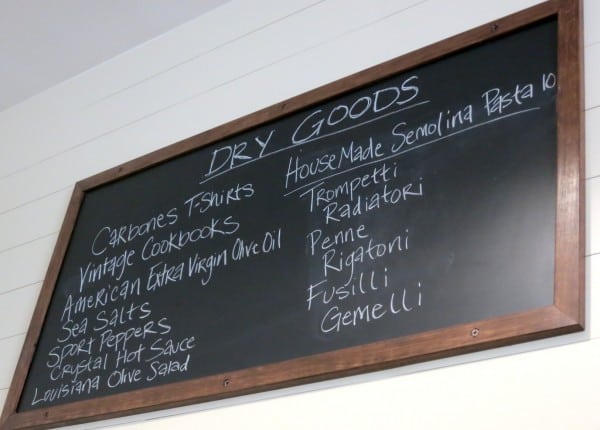 DRY GOODS
Carbones T-Shirts
Vintage Cookbooks
American Extra Virgin Olive Oil
Sea Salts
Sport Peppers
Crystal Hot Sauce
Louisiana Olive Salad
HouseMade Semolina Pasta 10
Trompetti
Radiatori
Penne
Rigatoni
Fusilli
Gemelli